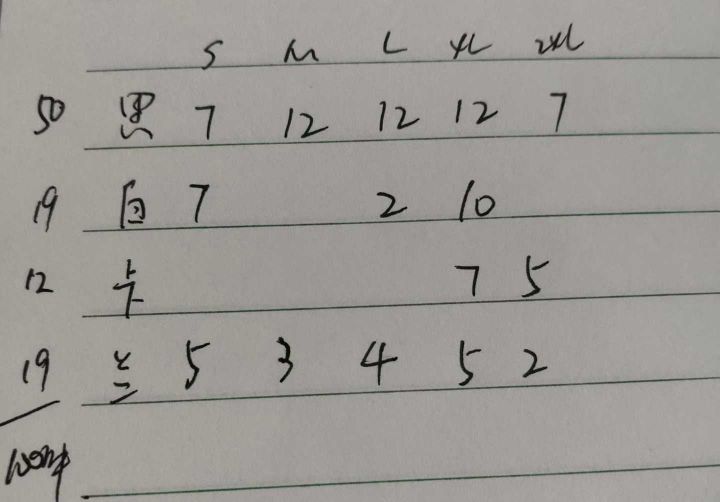 S M L XL 2XL
50 黑 7 12 12 12 7
19 白 7 2 10
12 卡 7 5
19 兰 5 3 4 5 2
100件